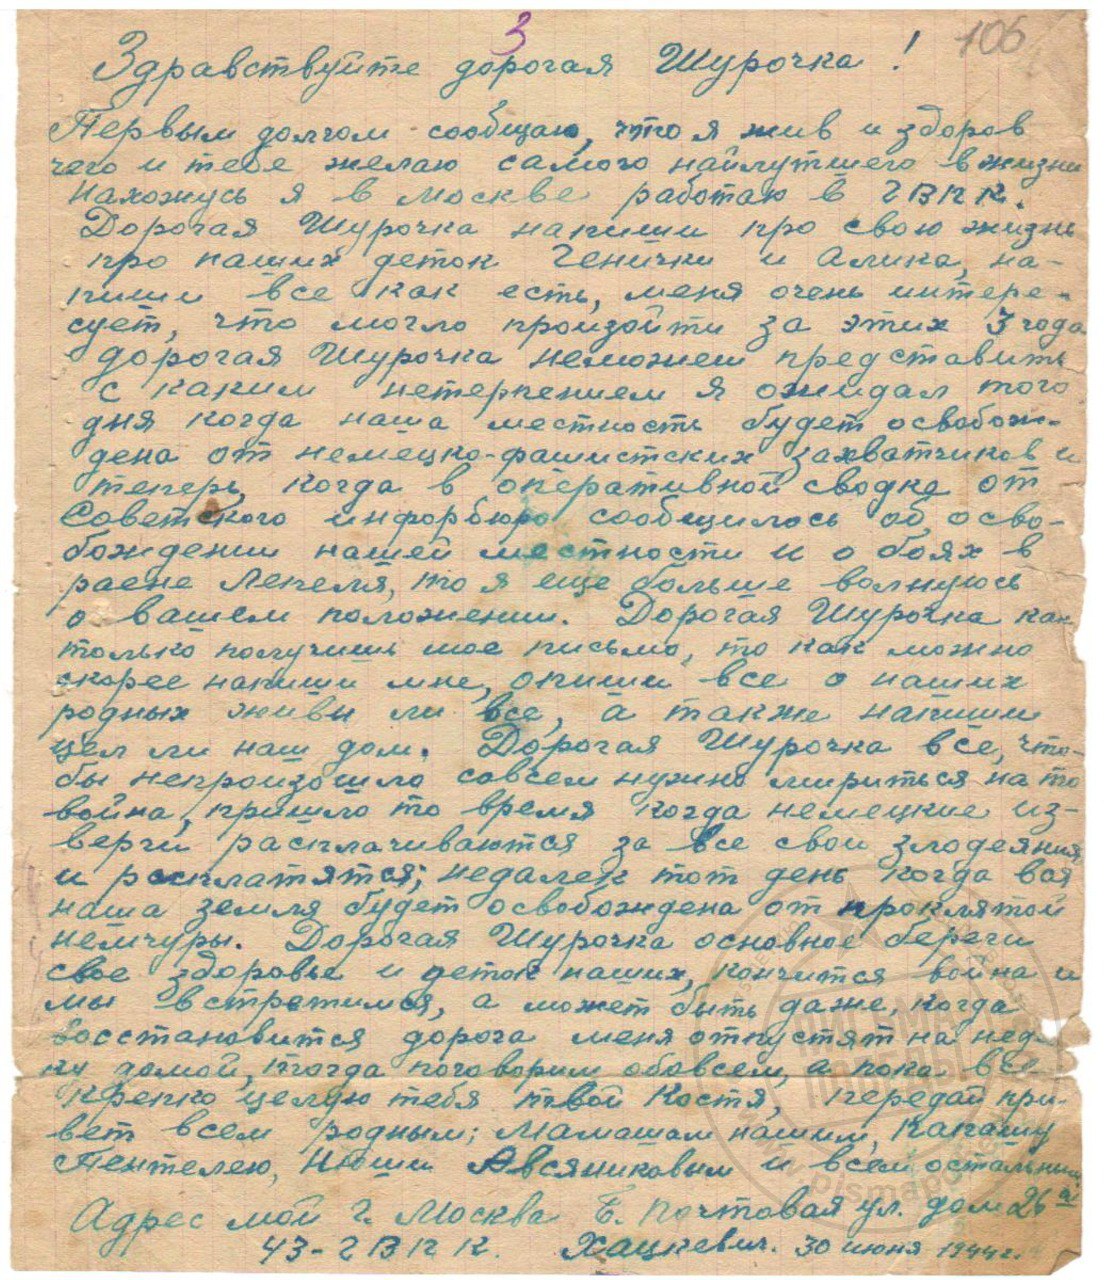 3
105
Здравствуйте дорогая Шурочка!
Первым долгом сообщаю, что я жив и здоров
чего и тебе желаю самого найлутшего в жизни
Нахожусь я в Москве работаю в 2ВПК.
Дорогая Шурочка напиши про свою жизнь
про наших деток Генички и Алика, на-
пиши все как есть, меня очень интере-
сует, что могло произойти за этих 3 года
дорогая Шурочка неможеш представить
с каким нетерпением я ожидал того
дня когда наша местность будет освобож-
дена от немецко-фашистских захватчиков и
теперь, когда в оперативной сводке от
Советского информбюро сообщилось об осво-
бождении нашей местности и о боях в
раене Лепеля, то я еще больше волнуюсь
о вашем положении. Дорогая Шурочка как
только получишь мое письмо, то как можно
скорее напиши мне, опиши все о наших
родных живы ли все, а также напиши
цел ли наш дом. Дорогая Шурочка все, что-
бы непроизошло совсем нужно мириться на то
война, пришло то время когда немецкие из-
верги расплачиваются за все свои злодеяния
и расплатятся; недалек тот день когда вся
наша земля будет освобождена от проклятой
немчуры. Дорогая Шурочка основное береги
свое здоровье и деток наших, кончится война и
мы встретимся, а может быть даже, когда
восстановится дорога меня отпустят на неде-
лю домой, тогда поговорим обовсем, а пока все
крепко целую тебя твой Костя, передай при-
вет всем родным; Мамашам нашим, Папашу
Пентелею, Нюши Авсяниковым и всем остальным
Адрес мой г. Москва Б. Почтовая ул. дом 26
43-2ВПК. Хацкевич. 30 июня 1944г.
ПИСЬМА
ПОБЕДЫ